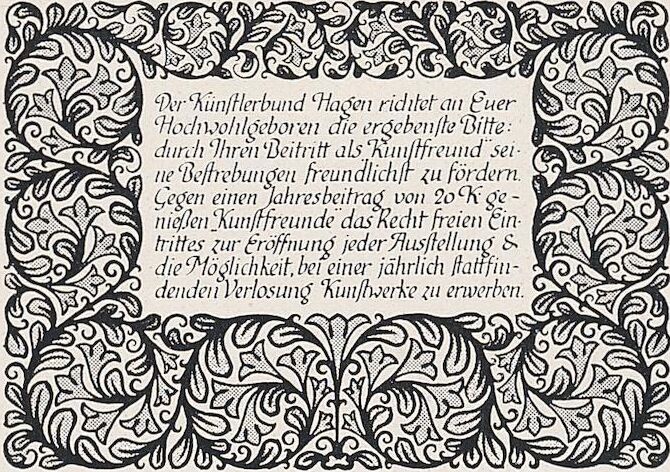 Der Künstlerbund Hagen richtet an Euer
Hochwohlgeboren die ergebenste Bitte:
durch Ihren Beitritt als „Kunstfreund“ sei-
ne Bestrebungen freundlichst zu fördern.
Gegen einen Jahresbeitrag von 20 K ge-
nießen „Kunstfreunde“ das Recht freien Ein-
trittes zur Eröffnung jeder Ausstellung &
die Möglichkeit, bei einer jährlich stattfin-
denden Verlosung Kunstwerke zu erwerben.